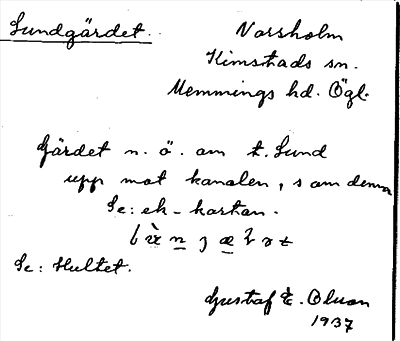 Sundgärdet.
Norsholm
Kimstads sn.
Memmings hd. Ögl.
Gärdet n. ö. om t. Sund
upp mot kanalen, som denna
Se: ek-kartan.
Se: Hultet.
Gustaf E. Olson
1937